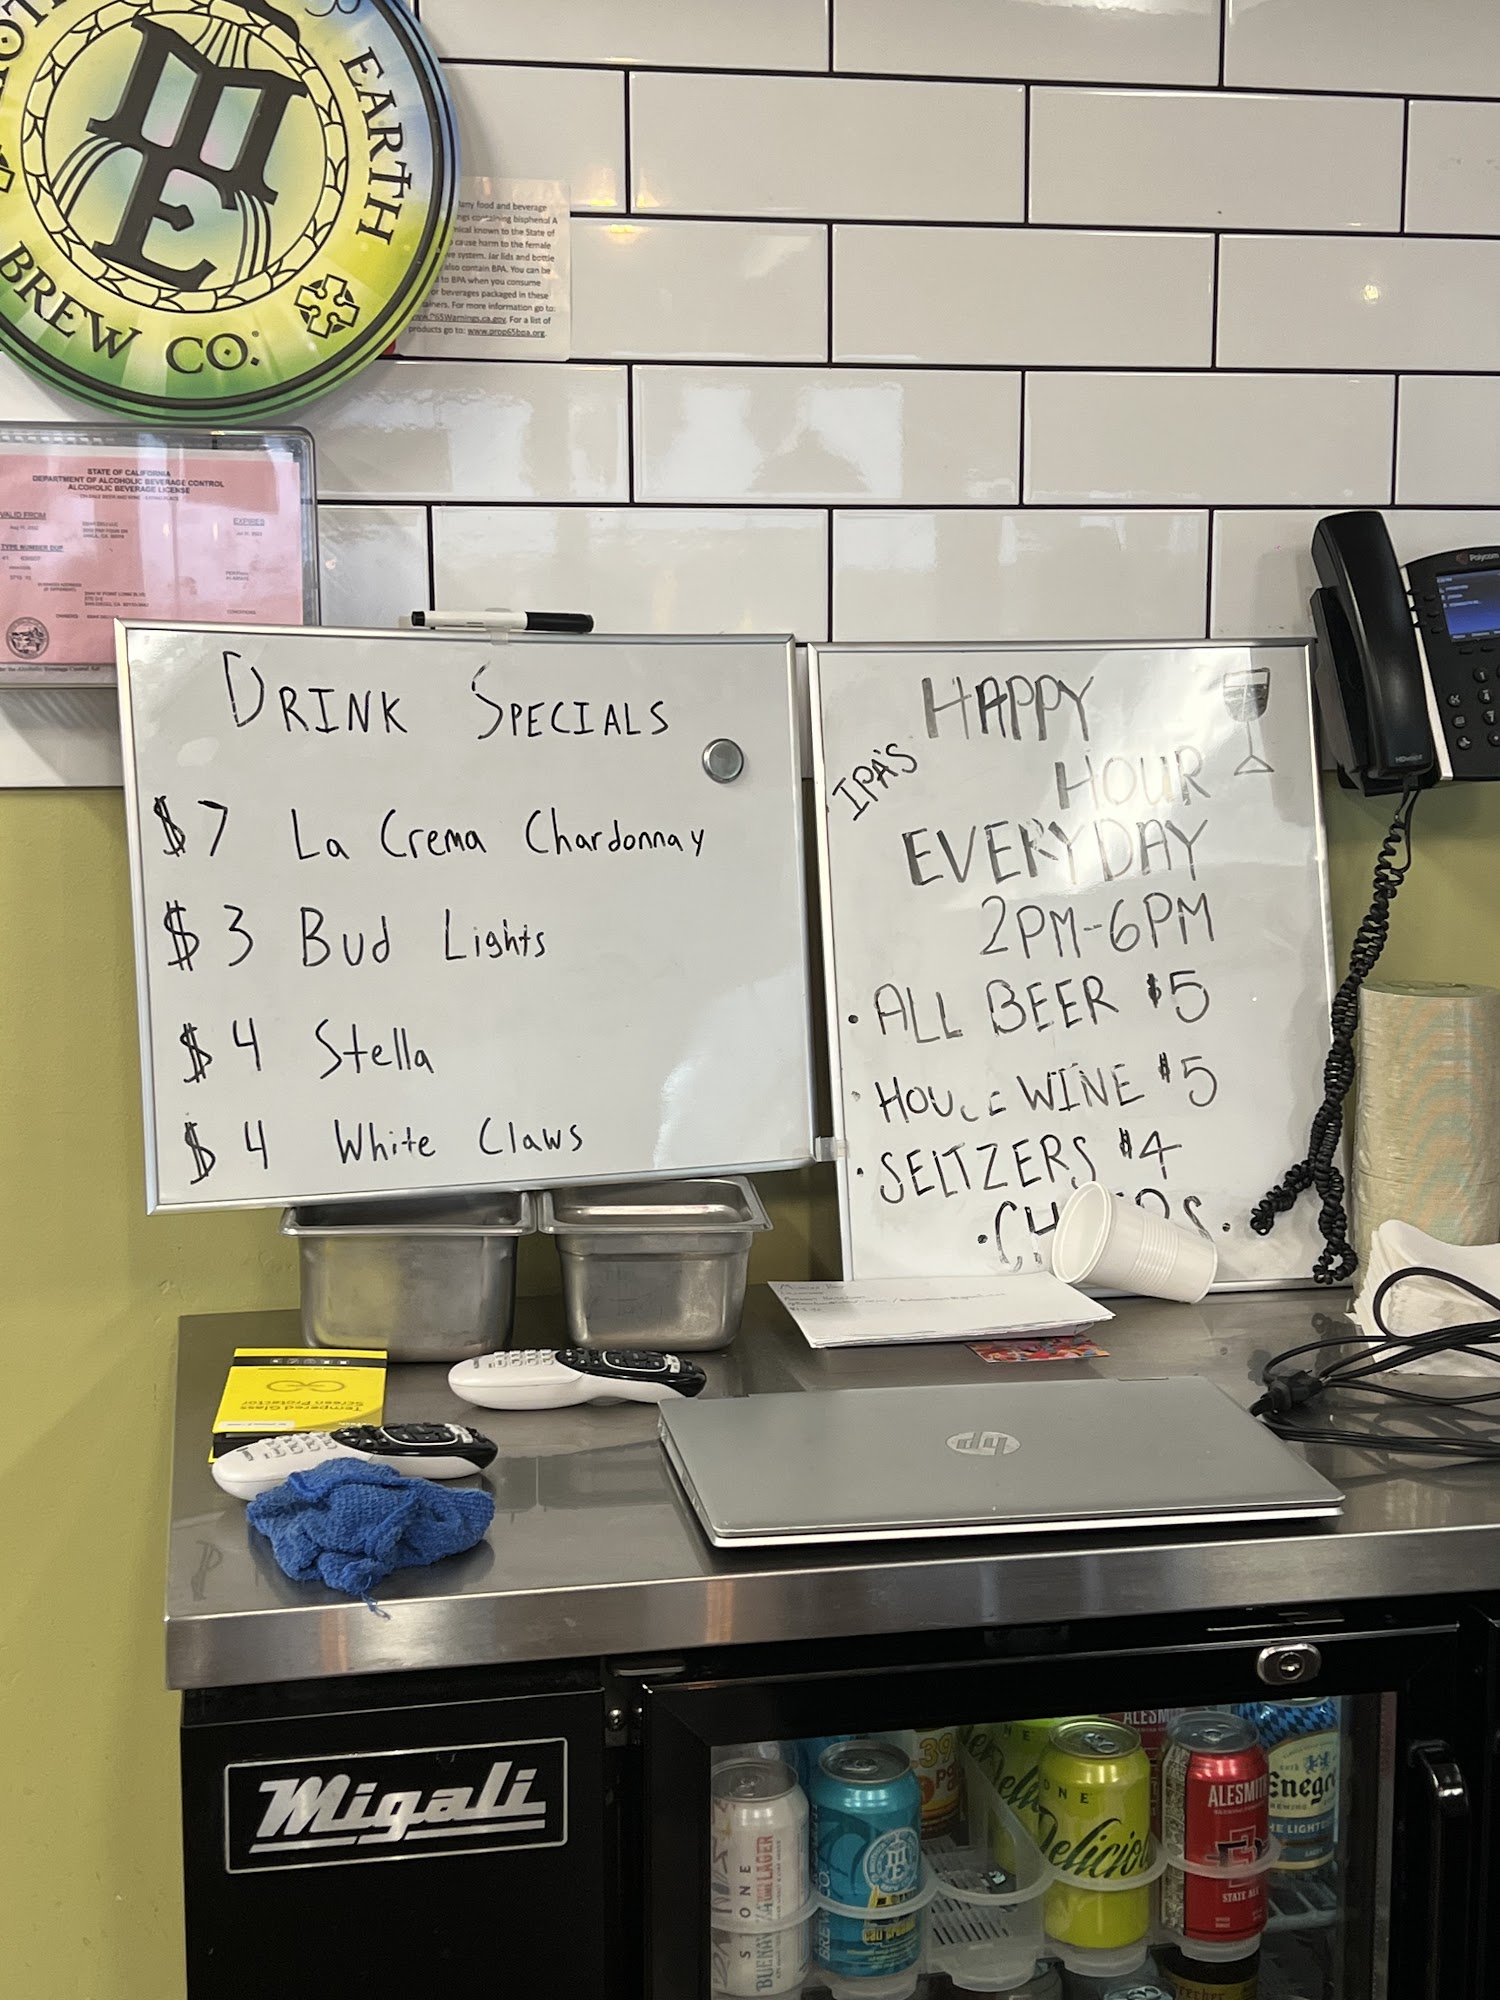 EARTH
BREW CO.
ME
any food and beverage
containing bisphenol A
known to the State of
cause harm to the female
system. Jar lids and bottle
also contain BPA. You can be
to BPA when you consume
or beverages packaged in these
For more information go to:
For a list of
products go to: www.prop65bpa.org.
STATE OF CALIFORNIA
DEPARTMENT OF ALCOHOLIC BEVERAGE CONTROL
ALCOHOLIC BEVERAGE LICENSE
VALID FROM
EXPIRES
TYPE NUMBER DUP
Polycom
DRINK SPECIALS
$7 La Crema Chardonnay
$3 Bud Lights
$4 Stella
$4 White Claws
HAPPY
IPA'S
HOUR
EVERYDAY
2PM-6PM
• ALL BEER $5
• HOUSE WINE $5
• SELTZERS $4
Tempered Glass
Screen Protector
hp
Migali
STONE
BUENAVEZA
LAGER
ME
BREW CO.
.39
STONE
Delicious
ALESMITH
STATE